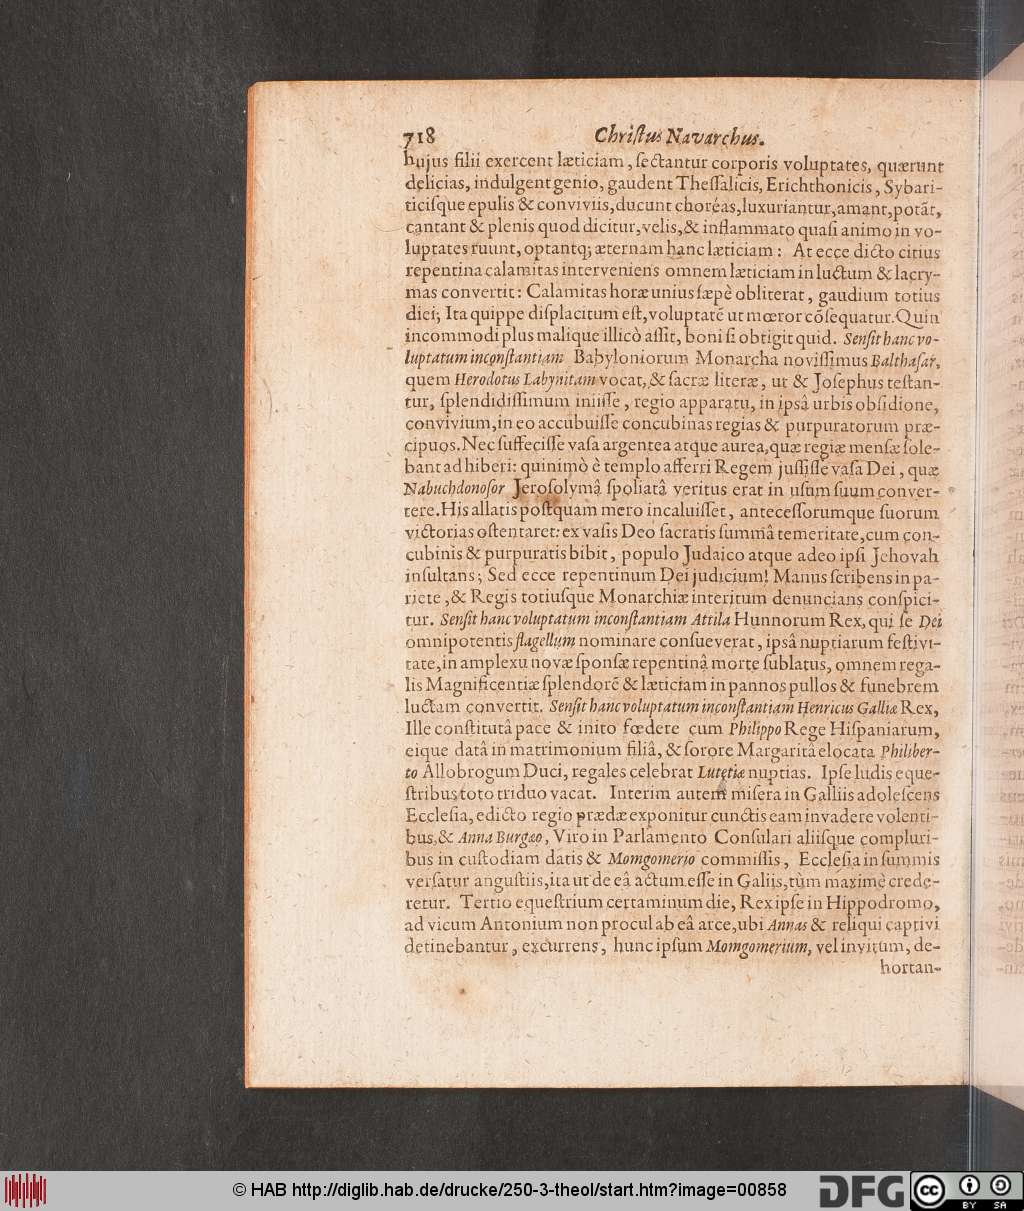 718 Christus Navarchus.
hujus filii exercent lætitiam, ſectantur corporis voluptates, quærunt
delicias, indulgent genio, gaudent Theſſalicis, Erichthonicis, Sybari-
ticiſque epulis & conviviis, ducunt choréas, luxuriantur, amant, potãt,
cantant & plenis quod dicitur, velis, & inflammato quaſi animo in vo-
luptates ruunt, optantq; æternam hanc læticiam: At ecce dicto citius
repentina calamitas interveniens omnem læticiam in luctum & lacry-
mas convertit: Calamitas horæ unius ſæpè obliterat, gaudium totius
diei; Ita quippe diſplacitum eſt, voluptatẽ ut mœror cõſequatur. Quin
incommodi plus malique illicò aſſit, boni ſi obtigit quid. Senſit hanc vo-
luptatum inconſtantiam Babyloniorum Monarcha noviſſimus Balthaſar,
quem Herodotus Labynitam vocat, & ſacræ literæ, ut & Joſephus teſtan-
tur, ſplendidiſſimum iniiſſe, regio apparatu, in ipsâ urbis obſidione,
convivium, in eo accubuiſſe concubinas regias & purpuratorum præ-
cipuos. Nec ſuffeciſſe vaſa argentea atque aurea, quæ regiæ menſæ ſole-
bant adhiberi: quinimò è templo afferri Regem juſſiſſe vaſa Dei, quæ
Nabuchdonoſor Jeroſolymâ ſpoliatâ veritus erat in uſum ſuum conver-
tere. His allatis poſtquam mero incaluiſſet, anteceſſorumque ſuorum
victorias oſtentaret: ex vaſis Deo ſacratis ſummâ temeritate, cum con-
cubinis & purpuratis bibit, populo Judaico atque adeo ipſi Jehovah
inſultans; Sed ecce repentinum Dei judicium! Manus ſcribens in pa-
riete, & Regis totiuſque Monarchiæ interitum denuncians conſpici-
tur. Senſit hanc voluptatum inconſtantiam Attila Hunnorum Rex, qui ſe Dei
omnipotentis flagellum nominare conſueverat, ipsâ nuptiarum feſtivi-
tate, in amplexu novæ ſponſæ repentinâ morte ſublatus, omnem rega-
lis Magnificentiæ ſplendorẽ & læticiam in pannos pullos & funebrem
luctam convertit. Senſit hanc voluptatum inconſtantiam Henricus Galliæ Rex,
Ille conſtitutâ pace & inito fœdere cum Philippo Rege Hiſpaniarum,
eique datâ in matrimonium filiâ, & ſorore Margaritâ elocata Philiber-
to Allobrogum Duci, regales celebrat Lutetiæ nuptias. Ipſe ludis eque-
ſtribus toto triduo vacat. Interim autem miſera in Galliis adoleſcens
Eccleſia, edicto regio prædæ exponitur cunctis eam invadere volenti-
bus, & Anna Burgæo, Viro in Parlamento Conſulari aliiſque compluri-
bus in cuſtodiam datis & Momgomerio commiſſis, Eccleſia in ſummis
verſatur anguſtiis, ita ut de eâ actum eſſe in Galiis, tùm maximè crede-
retur. Tertio equeſtrium certaminum die, Rex ipſe in Hippodromo,
ad vicum Antonium non procul ab eâ arce, ubi Annas & reliqui captivi
detinebantur, excurrens, hunc ipſum Momgomerium, vel invitum, de-
hortan-
© HAB http://diglib.hab.de/drucke/250-3-theol/start.htm?image=00858
DFG
cc
BY SA